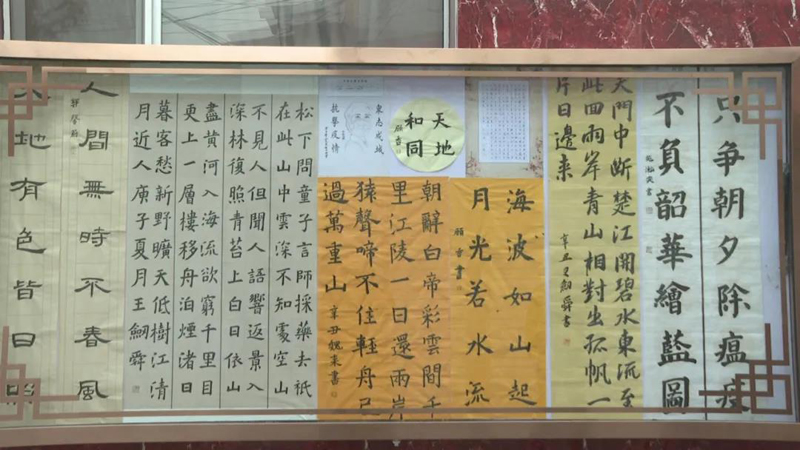 只争朝夕除瘟疫
不負韶華繪藍圖
天門中斷楚江開碧水東流至
此回兩岸青山相對出孤帆一
片日邊来
海波如山起
月光若水流
天地
和同
眾志成城
抗擊疫情
朝辭白帝彩雲間千
里江陵一日還兩岸
猿聲啼不住輕舟已
過萬重山
辛丑魏東書
松下問童子言師採藥去祇
在此山中雲深不知處空山
不見人但聞人語響返景入
深林復照青苔上白日依山
盡黄河入海流欲窮千里目
更上一層樓移舟泊煙渚日
暮客愁新野曠天低樹江清
月近人庚子夏月王劒舜
人間無時不春風
地有色皆日